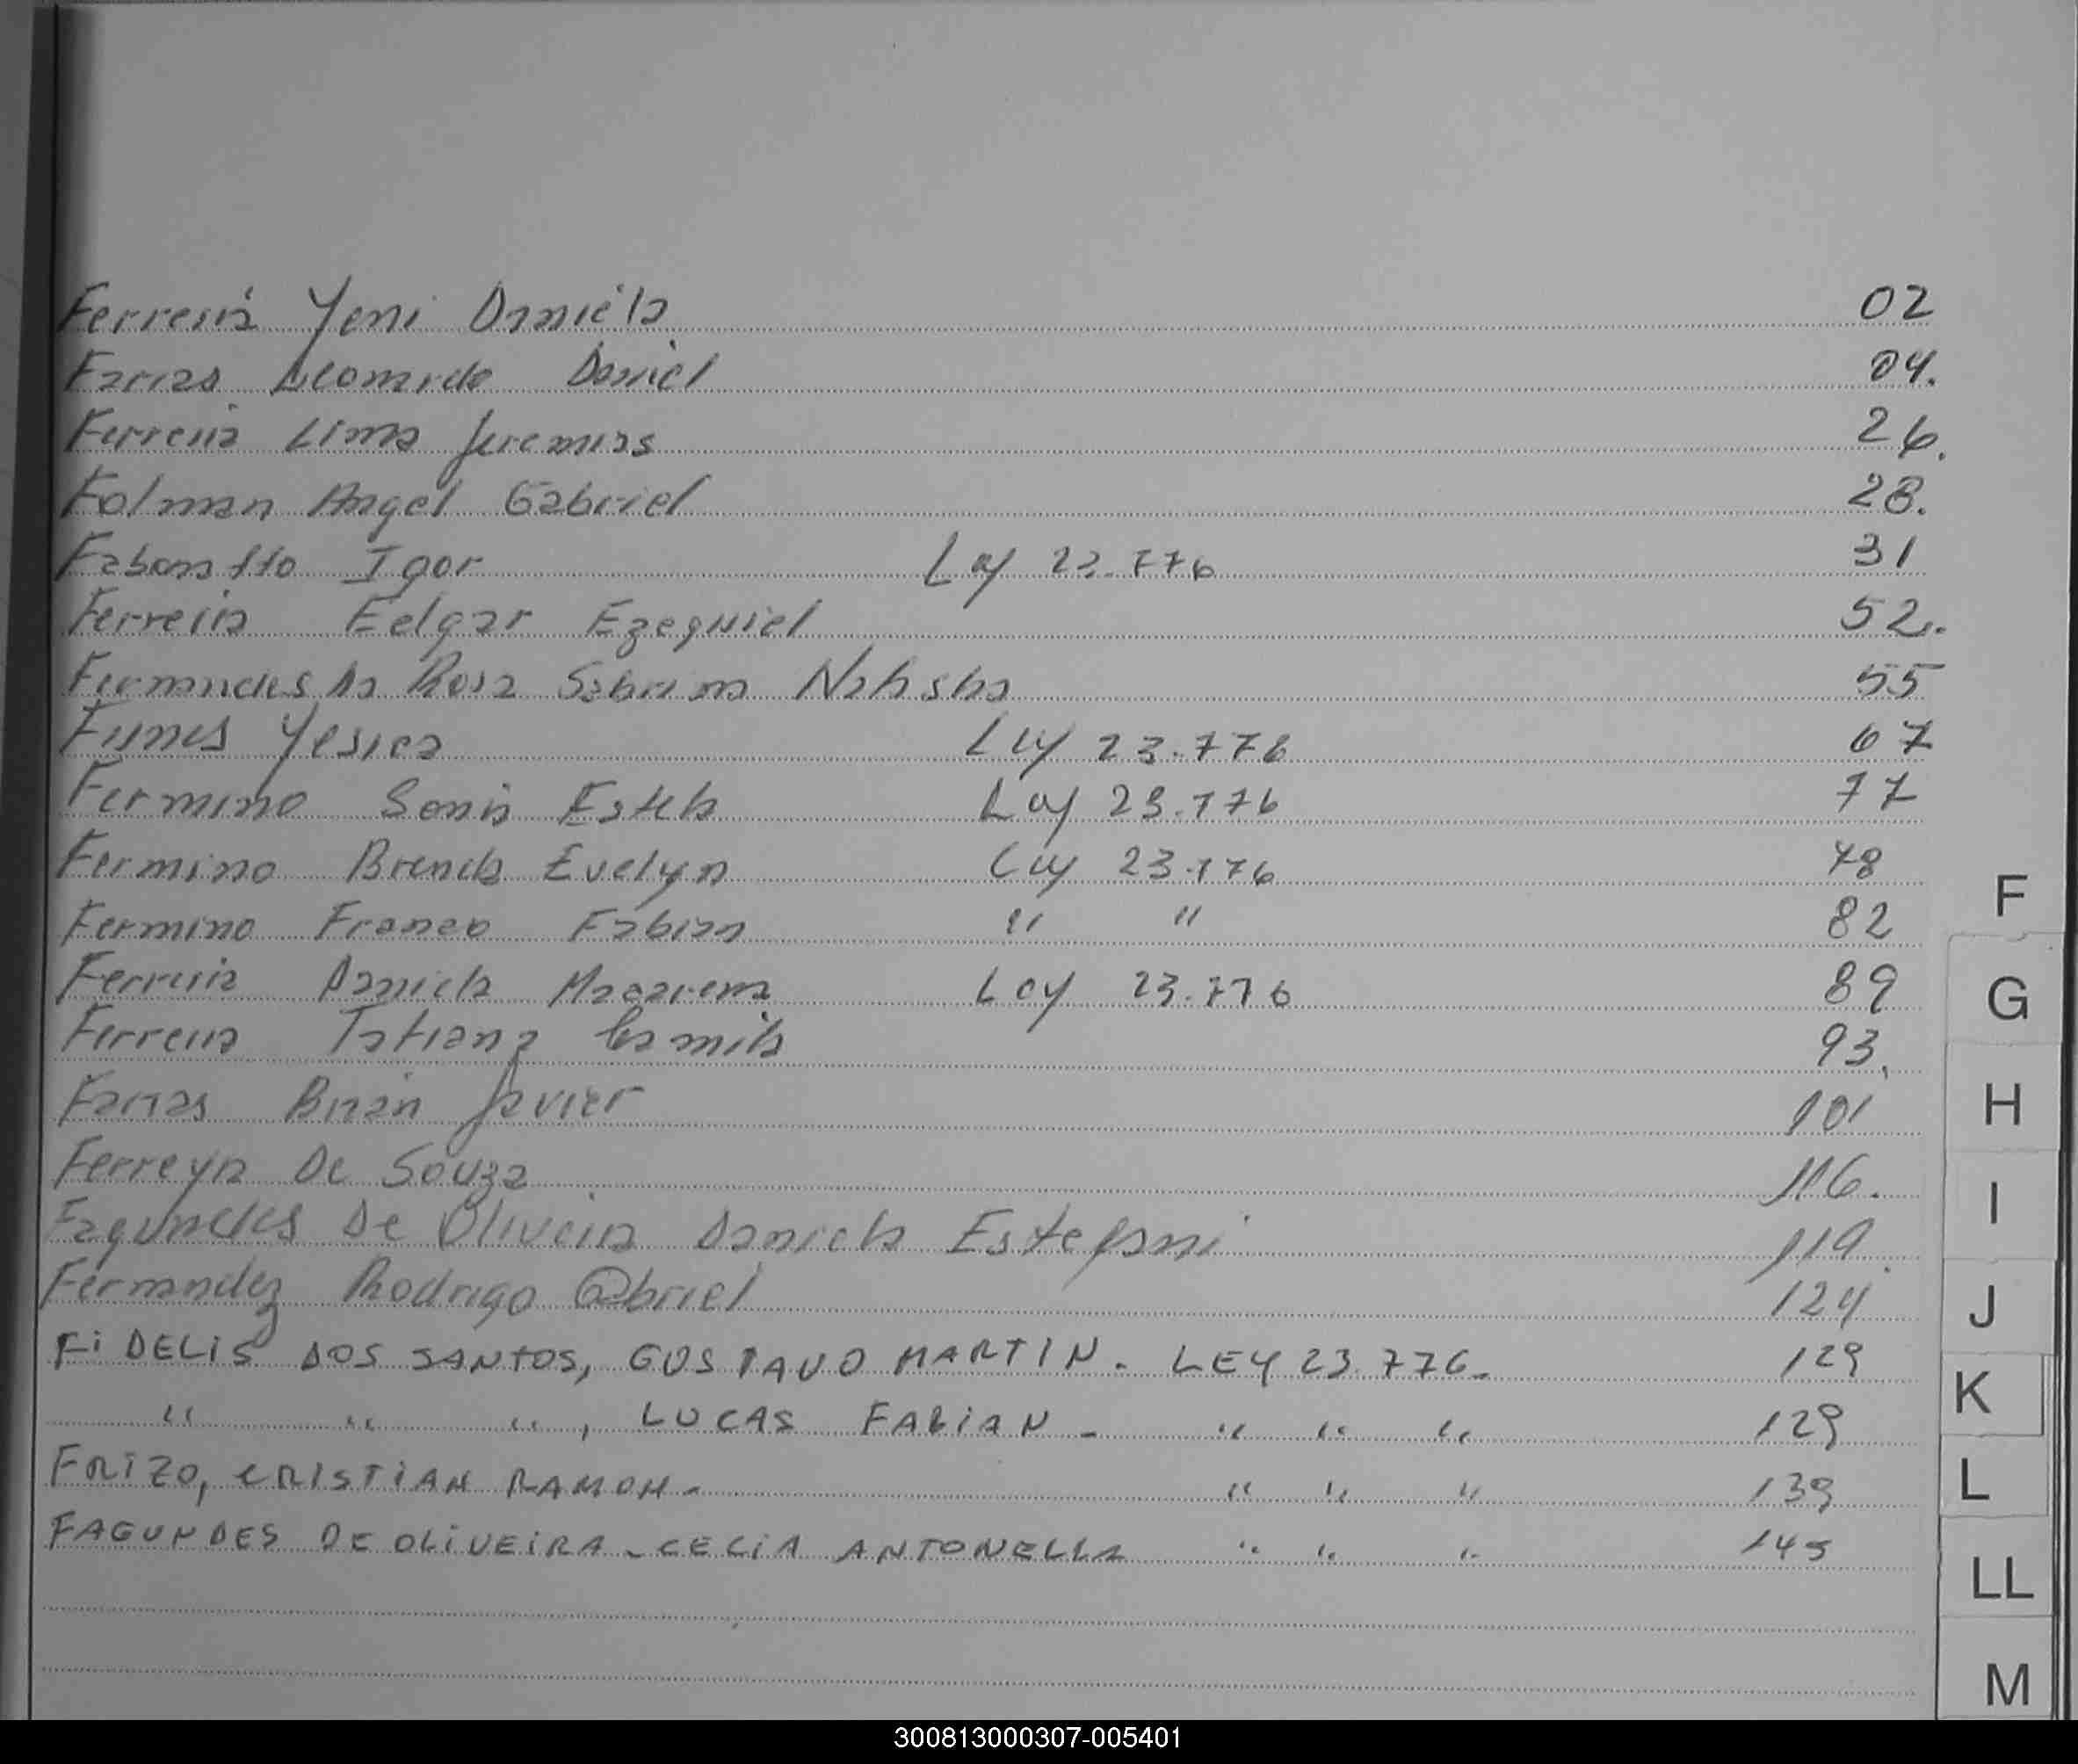 Ferreira Yeni Daniela 02
Farias Leonardo Daniel 04.
Ferreira Lima Jeremias 26.
Folman Angel Gabriel 28.
Igor Ley 23.776 31
Ferreira Edgar Ezequiel 52.
Fernandes Da Rosa Sabrina Natasha 55
Funes Yesica Ley 23.776 67
Fermino Sonia Estela Ley 23.776 77
Fermino Brenda Evelyn Ley 23.776 78
Fermino Franco Fabian " " 82
Ferreira Daniela Macarena Ley 23.776 89
Ferreira Tatiana Camila 93.
Farias Brian Javier 101
Ferreyra De Souza 116.
Fagundes De Oliveira Daniela Estefani 119.
Fernandez Rodrigo Gabriel 124
FiDELIS DOS SANTOS, GUSTAVO MARTIN. LEY 23.776. 129
" " ", LUCAS FABiAN - " " " 129
FRIZO, CRISTiAN RAMON- " " " 139
FAGUNDES DE OLiVEiRA - CELiA ANTONELLA " " " 145
F
G
H
I
J
K
L
LL
M
300813000307-005401